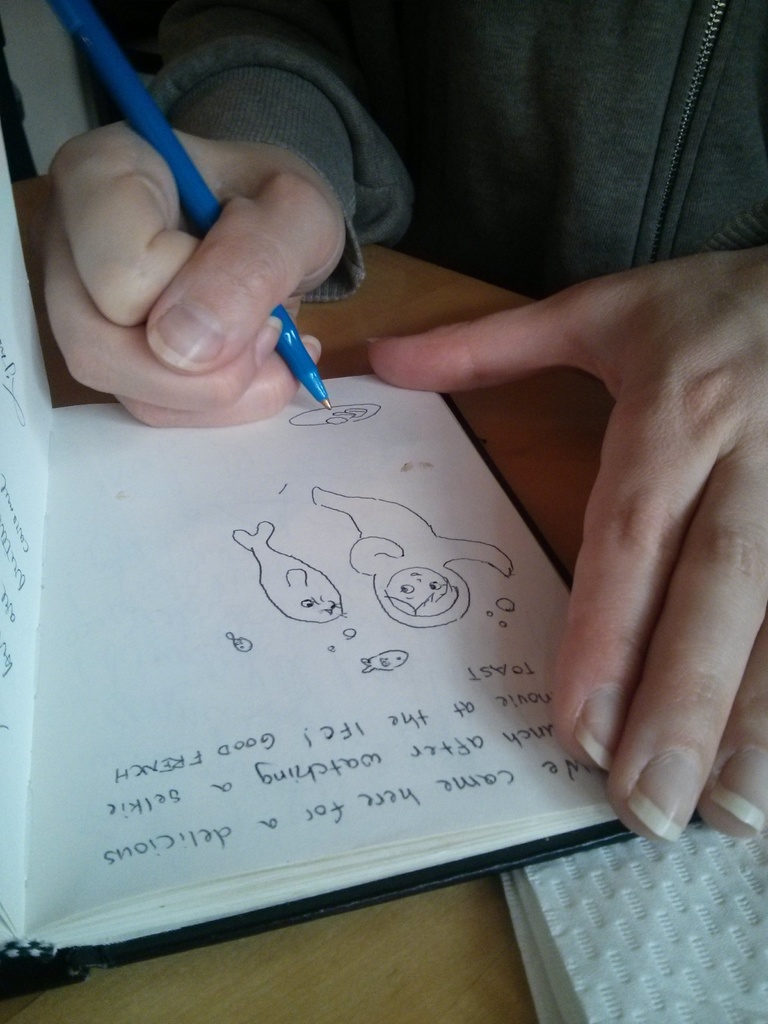 We came here for a delicious
unch after watching a selkie
movie at the IFC! GOOD FRENCH
TOAST
are
butter
caramel